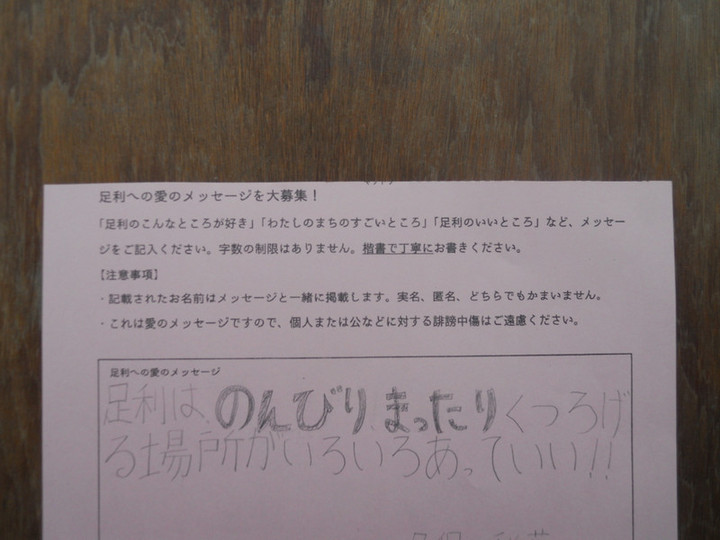 足利への愛のメッセージを大募集！
「足利のこんなところが好き」「わたしのまちのすごいところ」「足利のいいところ」など、メッセー
ジをご記入ください。字数の制限はありません。楷書で丁寧にお書きください。
【注意事項】
・記載されたお名前はメッセージと一緒に掲載します。実名、匿名、どちらでもかまいません。
・これは愛のメッセージですので、個人または公などに対する誹謗中傷はご遠慮ください。
足利への愛のメッセージ
足利は、のんびり、まったりくつろげ
る場所がいろいろあっていい!!